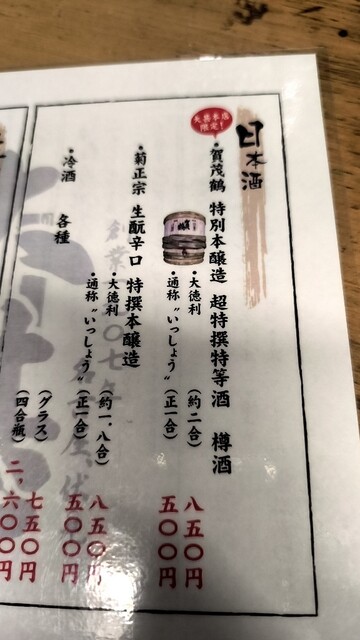 日本酒
矢場本店
限定！
・賀茂鶴 特別本醸造 超特撰特等酒 樽酒
・大徳利 （約二合） 八五〇円
・通称〝いっしょう〟（正一合） 五〇〇円
・菊正宗 生酛辛口 特撰本醸造
・大徳利 （約一、八合） 八五〇円
・通称〝いっしょう〟（正一合） 五〇〇円
・冷酒 各種
（グラス） 七五〇円
（四合瓶） 二、六〇〇円